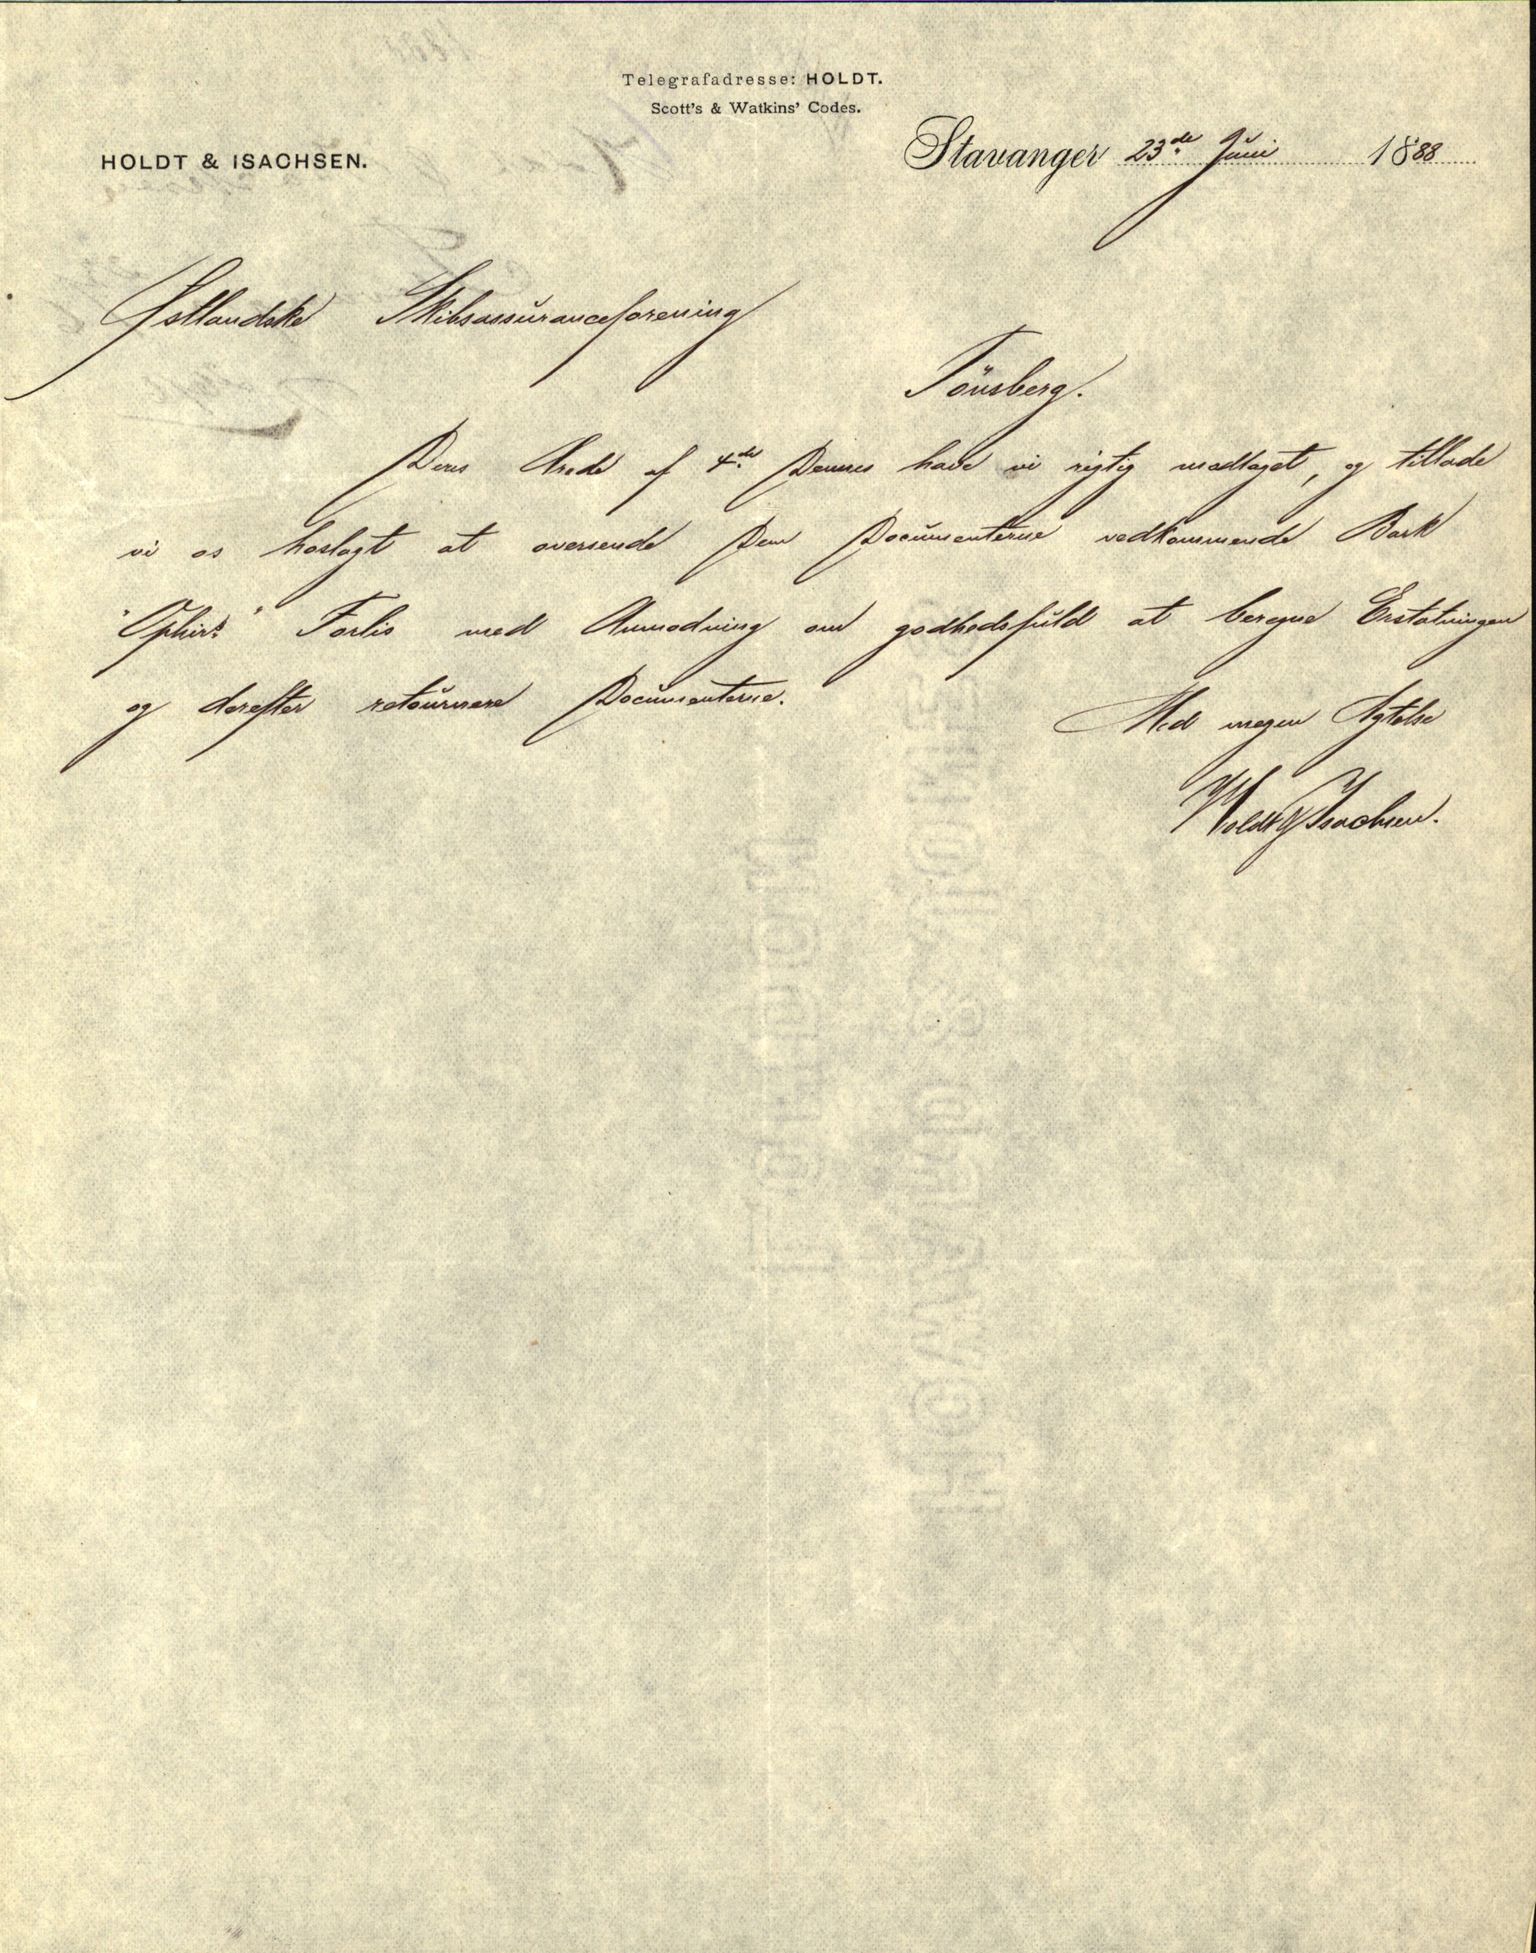 Telegrafadresse: HOLDT.
Scott's & Watkins' Codes.
HOLDT & ISACHSEN.
Stavanger 23de Juni 1888
Østlandske Skibsassuranceforening
Tönsberg.
Deres Ærede af 4de Dennes have vi rigtig modtaget, og tillade
vi os hoslagt at oversende Dem Documenterne vedkommende Bark
"Ophirs" Forlis med Anmodning om godhedsfuld at beregne Erstatningen
og derefter retournere Documenterne.
Med megen Agtelse
Holdt & Isachsen.